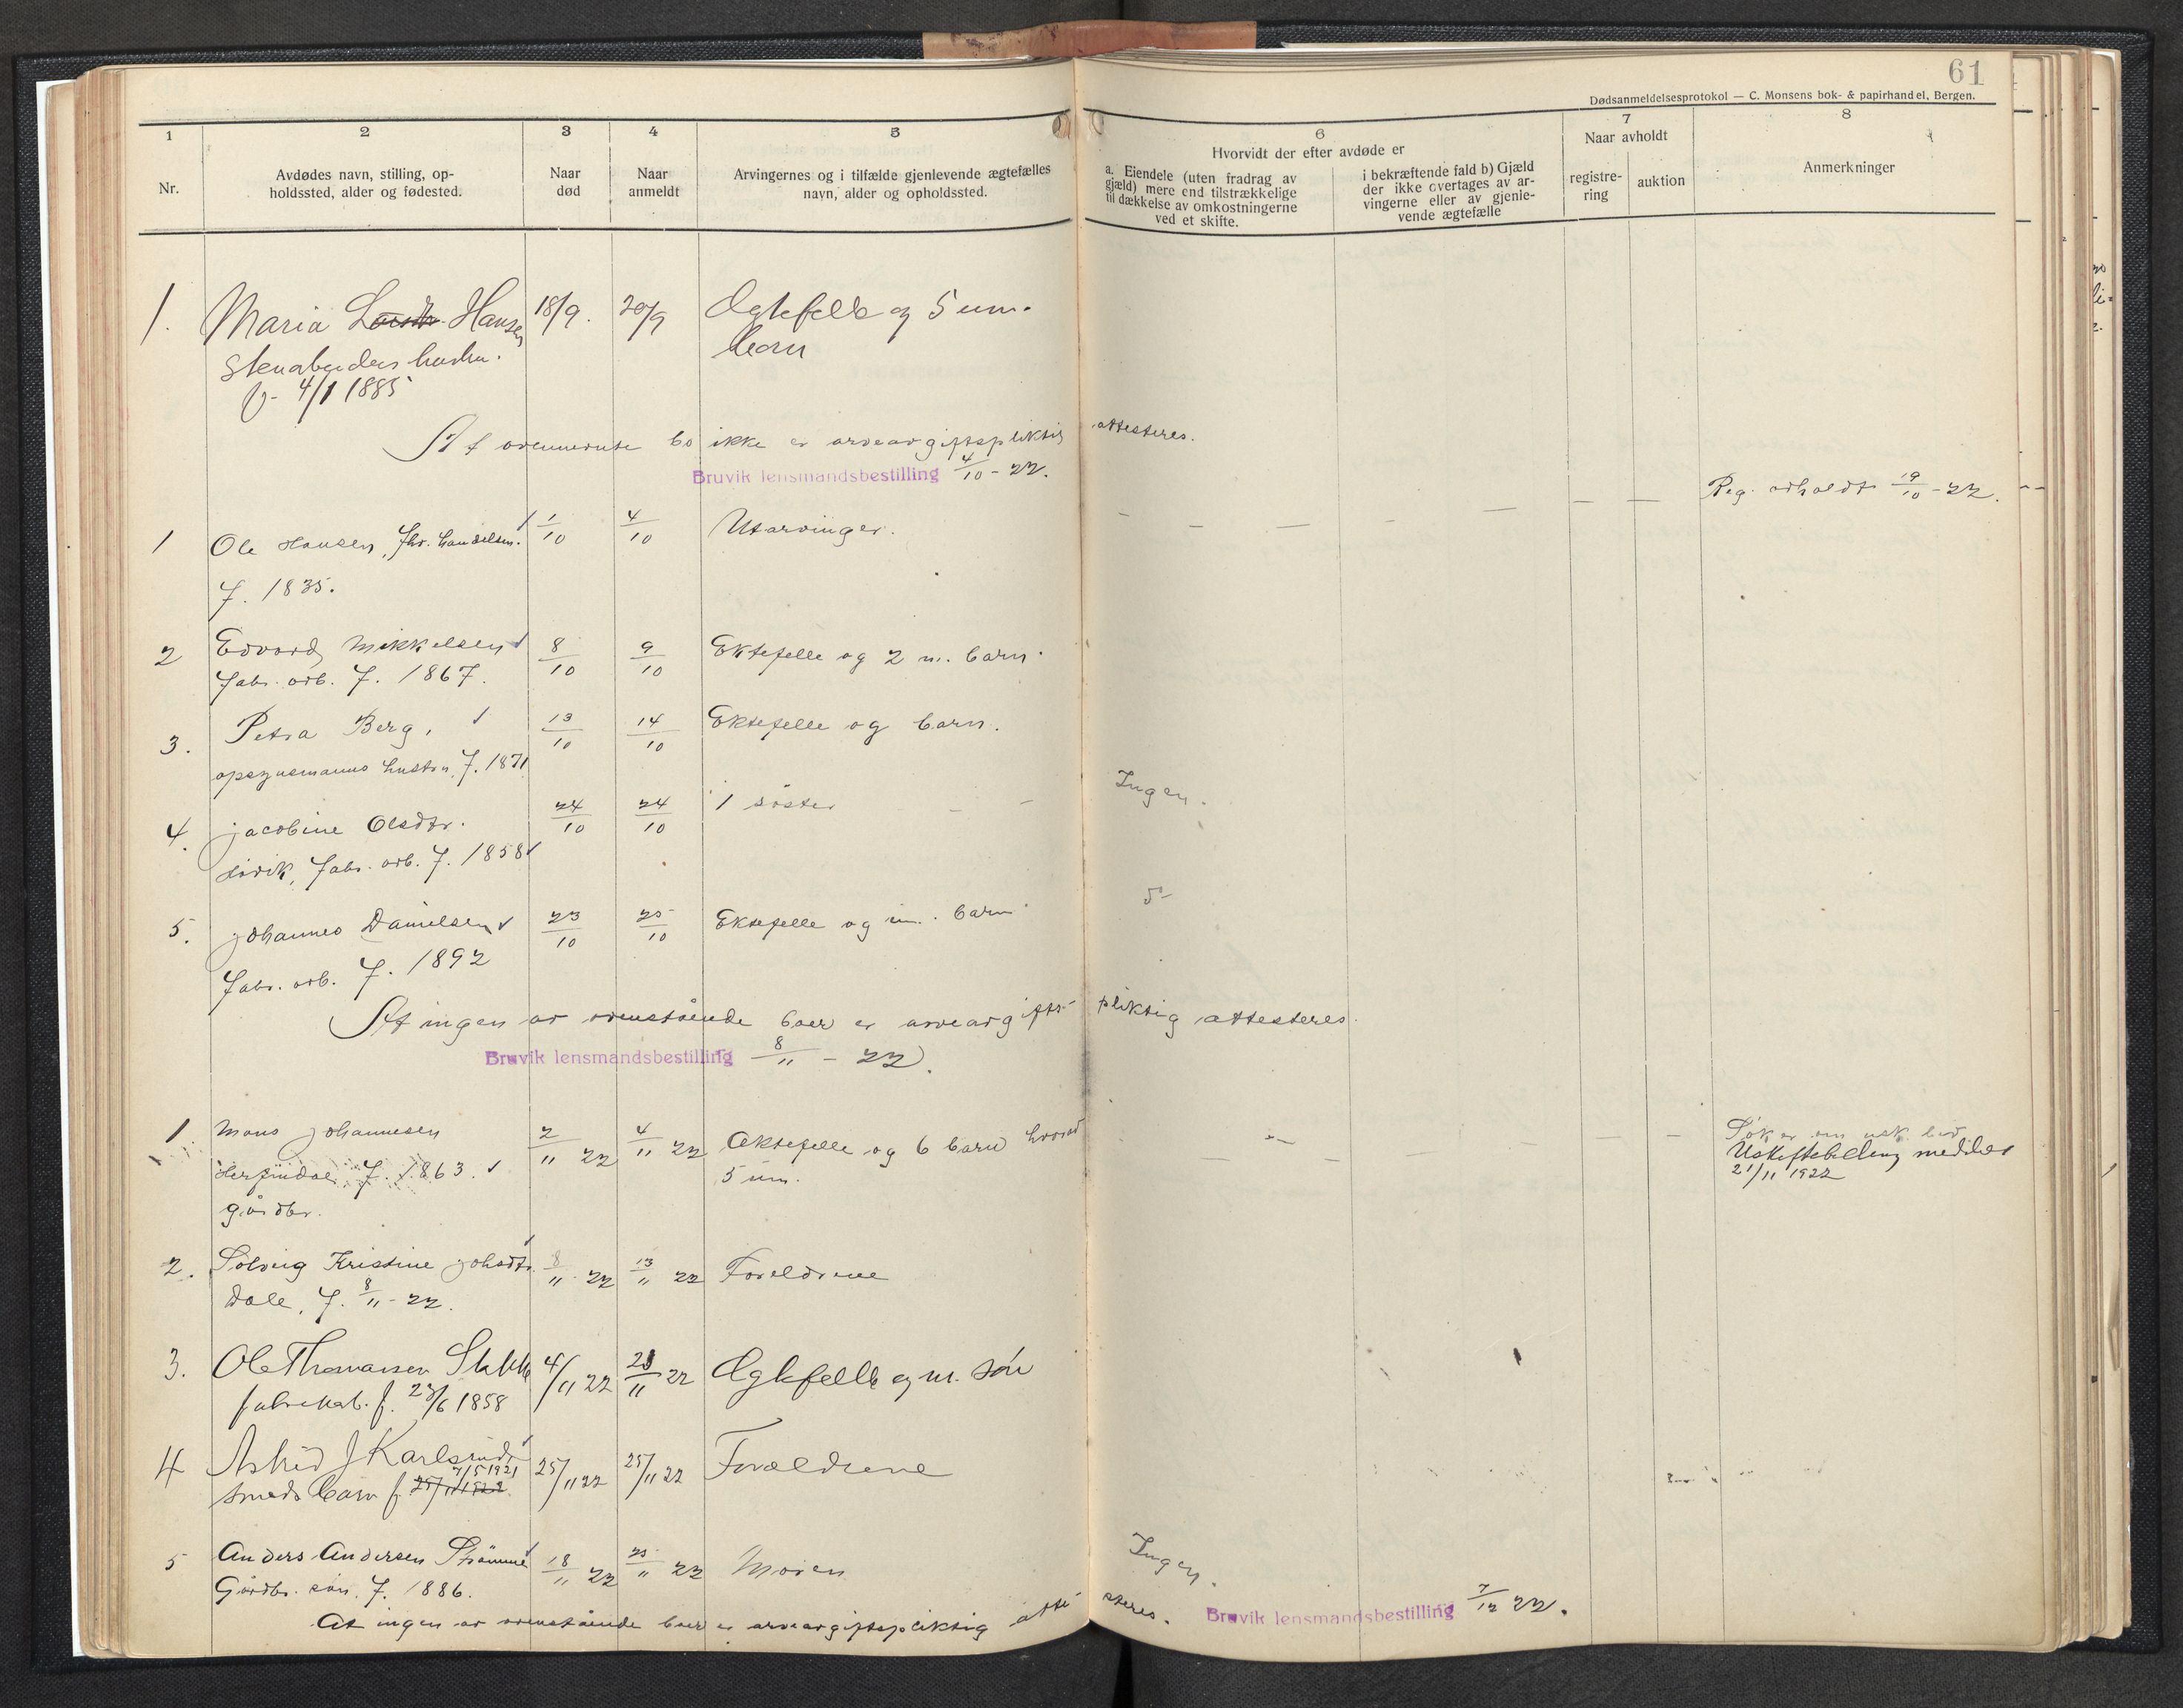 61
Dødsanmeldelsesprotokol — C. Monsens bok- & papirhandel, Bergen.
1 2 3 4 5 6 7 8
Nr.
Avdødes navn, stilling, op-
holdssted, alder og fødested.
Naar
død
Naar
anmeldt
Arvingernes og i tilfælde gjenlevende ægtefælles
navn, alder og opholdssted.
Hvorvidt der efter avdøde er
a. Eiendele (uten fradrag av
gjæld) mere end tilstrækkelige
til dækkelse av omkostningerne
ved et skifte.
i bekræftende fald b) Gjæld
der ikke overtages av ar-
vingerne eller av gjenle-
vende ægtefælle
Naar avholdt
registre-
ring
auktion
Anmerkninger
1. Maria Hansen 18/9. 20/9 Ægtefelle og 5 um.
børn
f. 4/1 1885
At ovennevnte bo ikke er arveavgiftspliktig attesteres.
Bruvik lensmandsbestilling 4/10 - 22.
Reg. avholdt 19/10 - 22.
1 Ole Hansen, 1/10 4/10 Utarvinger.
f. 1835.
2 Edvard Mikkelsen 8/10 9/10 Ektefelle og 2 m. barn.
fabr. arb. f. 1867.
3. Petra Berg, 13/10 14/10 Ektefelle og barn.
opsynsmanns hustru, f. 1871
4. Jacobine Olsdtr. 24/10 24/10 1 søster — — Ingen.
fabr. arb. f. 1858
5. Johannes Danielsen 23/10 25/10 Ektefelle og um. barn.
fabr. arb. f. 1892
At ingen av ovenstående boer er arveavgiftspliktig attesteres.
Bruvik lensmandsbestilling 8/11 - 22.
1. Mons Johannesen 2/11 22 4/11 22 Æktefelle og 6 barn hvorav
Herfindal f. 1863. 5 um.
gårdbr.
Uskiftebevilling meddelt
21/11 1922
2. Solveig Kristine Johsdtr. 8/11 22 13/11 22 Foreldrene
Dale, f. 8/11 - 22.
3. Ole Thomassen 4/11 22 21/11 22 Ægtefelle og m. søn
f. 23/6 1858
4 Astrid J Karls 25/11 22 25/11 22 Forældrene
7/5 1921
smeds barn f 25/11 1922
5 Anders Andersen Strømme 18/11 22 25/11 22 Moren Ingen.
Gårdbr. søn. f. 1886.
At ingen av ovenstående boer er arveavgiftspliktig attesteres. Bruvik lensmandsbestilling 7/12 22.